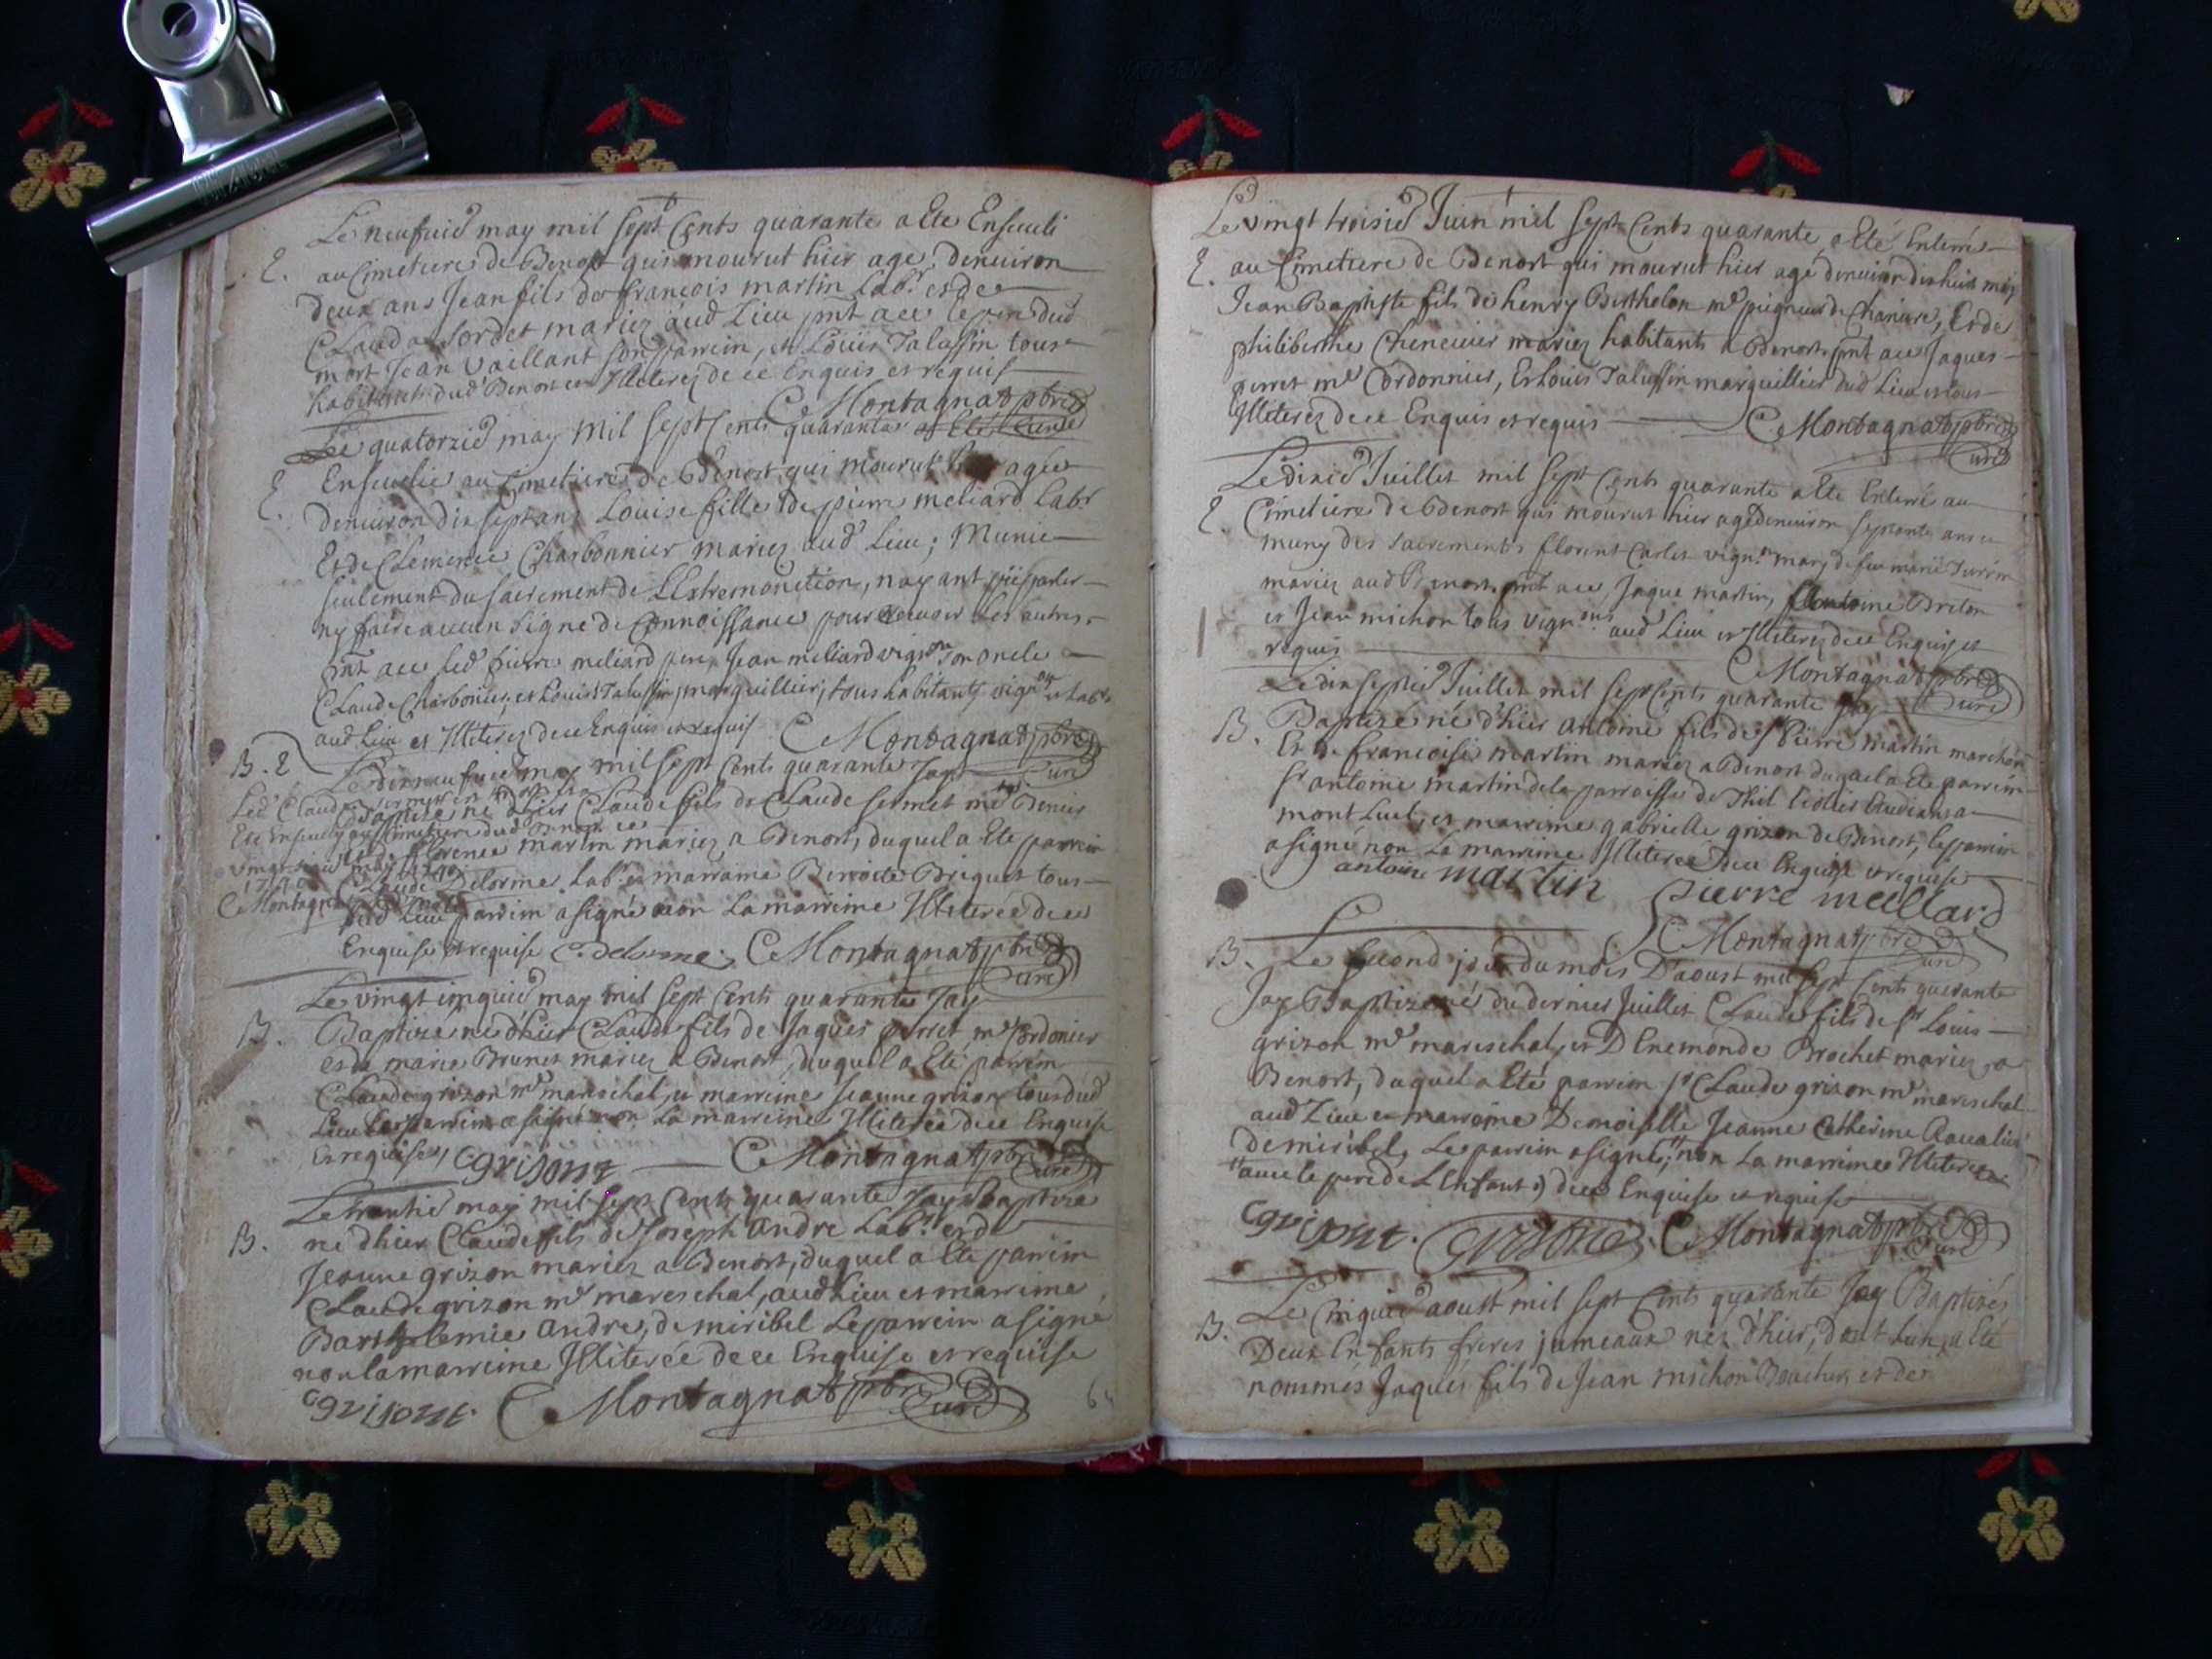 Le neufuie may mil sept Cents quarante a Ete Enseueli
E. au Cimetiere de Benost qui mourut hier age denuiron
deux ans Jean fils de francois martin Labr et de
Claudae Sordet mariez aud Lieu pnt au le pere dud
mort Jean Vaillant son parrein, et Loüis Talussin tous
habitants dud Benost et Illeterez de ce Enquis et requis
C Montagnat pbre
Le quatorzie may mil sept Cents quarante a Eté
E. Enseuelie au Cimetiere de Benost qui mourut hier agee
denuiron dix sept ans Louise fille de pierre meliard Labr
Et de Clemence Charbonnier mariez aud Lieu; Munie
seulement du sacrement de L'Extremonction, nayant pü parler
ny faire aucun Signe de Connoissance pour receuoir les autres
pnt au led pierre meliard pere, Jean meliard vignon son oncle
Claude Charbonier, et Louis Talussin marguillier, tous habitants vignons et Labrs
aud Lieu et Illeterez de ce Enquis et requis C Montagnat pbre
Curé
B. E Le dixneufuie may mil sept Cents quarante Jay
Baptizé né d'hier Claude fils de Claude sermet me
Led Claude sermet
Eté Enseuely au Cimetiere dud Benost
vingt
et de florence martin mariez a Benost, duquel a Eté parrein
Claude Delorme Labr et marraine Benoite Briquet tous
C Montagnat
dud Lieu parrein a signé non La marreine Illeterée de ce
Enquise et requise C delorme C Montagnat pbre
Curé
Le vingt cinquie may mil sept Cents quarante Jay
B. Baptize né d'hier Claude fils de Jaques perret me Cordonier
et de marie Brunet mariez a Benost, duquel a Eté parrein
Claude grizon me mareschal, et marreine Jeanne grizon tous dud
Lieu Le parrein a signé non La marreine Illeterée de ce Enquise
Et requise, C grisont C Montagnat pbre
Curé
Le trentie may mil sept Cents quarante Jay Baptize
B. né d'hier Claude fils de Joseph andre Labr et de
Jeanne grizon mariez a Benost, duquel a Eté parrein
Claude grizon me mareschal, aud Lieu et marreine
Barthelemie andre, de miribel Le parrein a signé
non la marreine Illeterée de ce Enquise et requise
C grisont. C Montagnat pbre
Curé
Le vingt troisie Juin mil sept Cents quarante a Eté Enterré
E. au Cimetiere de Benost qui mourut hier agé denuiron dix huit mois
Jean Baptiste fils de henry Berthelon me peigneur de Chanure, Et de
philiberthe Cheneuier mariez habitants a Benost pnt au Jaques
perret me Cordonnier, Et Louis Talussin marguillier dud Lieu et tous
Illeterez de ce Enquis et requis C Montagnat pbre
Curé
Le dixie Juillet mil sept Cents quarante a Eté Enterré au
E. Cimetiere de Benost qui mourut hier agé denuiron septante ans et
muny des sacrements florent Carlet vignn mary de feu marie
mariez aud Benost pnt au Jaque martin, Antoine Breton
et Jean michon tous vignons aud Lieu et Illeterez de ce Enquis et
requis C Montagnat pbre
Curé
Le dix septie Juillet mil sept Cents quarante Jay
B. Baptizé né d'hier antoine fils de sr Pierre martin marchand
Et de francoise martin mariez a Benost duquel a Eté parrein
sr antoine martin de la parroisse de Thil Etudiant a
montluel, et marreine gabrielle grizon de Benost, le parrein
a signé non La marreine Illeterée de ce Enquise et requise
antoine martin pierre meillard
C Montagnat pbre
Curé
B. Le second jour du mois D'aoust mil sept Cents quarante
Jay Baptizé né du dernier Juillet Claude fils de sr Louis
grizon me mareschal, et D Enemonde Brochet mariez a
Benost, duquel a Eté parrein sr Claude grizon me mareschal
aud Lieu et marreine Demoiselle Jeanne Catherine
de miribel, Le parrein a signé, non La marreine Illeterée
auec le pere de L Enfant de ce Enquise et requise
C grisont. Grisont C Montagnat pbre
Curé
Le Cinquie aoust mil sept Cents quarante Jay Baptizés
B. Deux Enfants freres jumeaux nez d'hier, dont Lun a Eté
nommés Jaques fils de Jean michon Boucher, et de